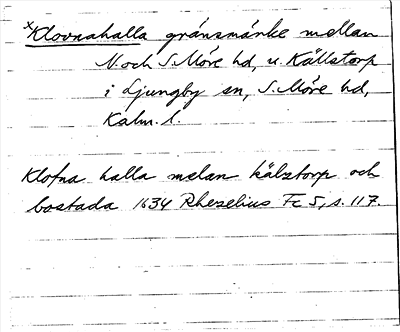 ×Klovnahalla gränsmärke mellan
N. och S. Möre hd, u. Källstorp
i Ljungby sn, S. Möre hd,
Kalm. l.
Klofna halla melan kälztorp och
bostada 1634 Rhezelius Fc 5, s. 117.